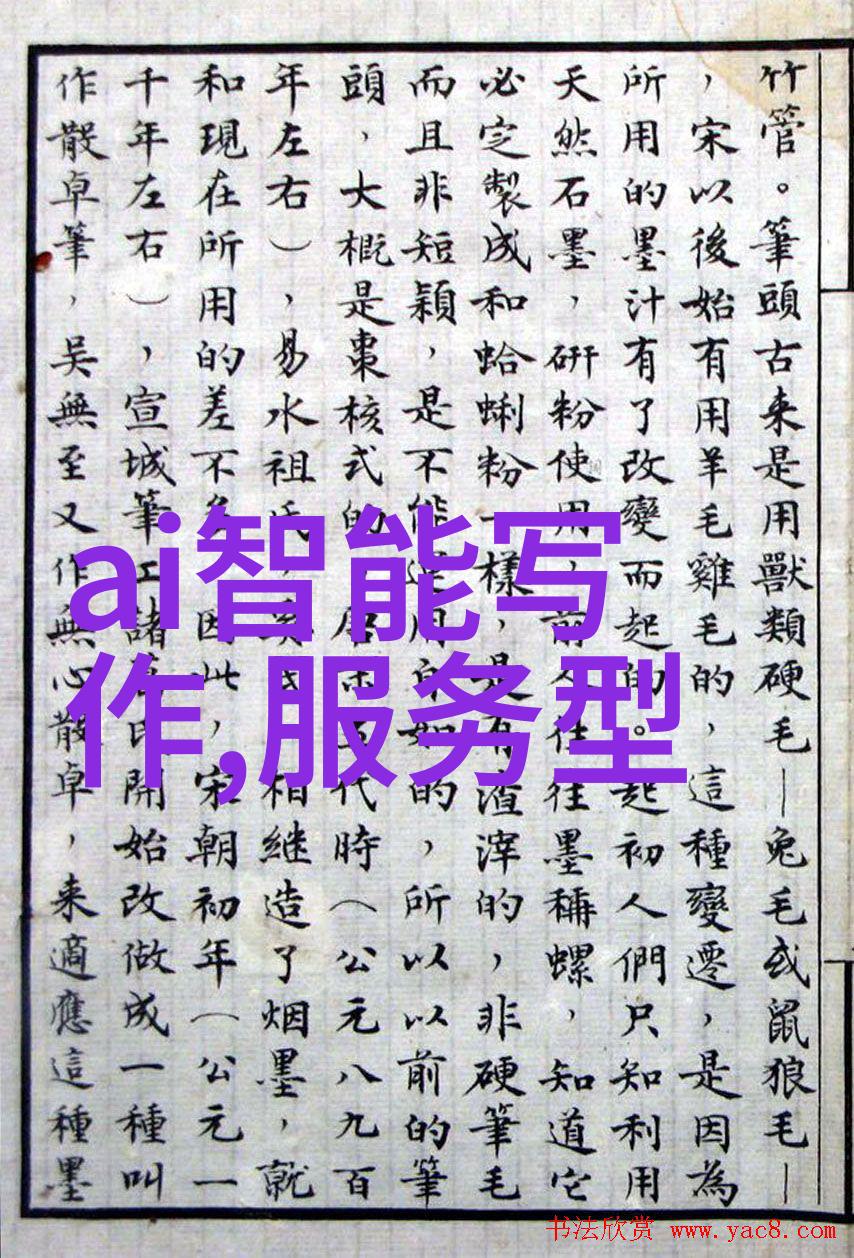 竹管。筆頭古来是用獸類硬毛—兔毛或鼠狼毛—
，宋以後始有用羊毛雞毛的，這種變遷，是因為
所用的墨汁有了改變而起的。起初人們只知利用
天然石墨，研粉使用，前人往往墨稱螺，知道它
必定製成和蛤蜊粉一樣，是有渣滓的，非硬筆毛
而且非短穎，是不能運用自如的，所以以前的筆
頭，大概是棗核式的。唐末五代時（公元八九百
年左右），易水祖氏、奚氏，相継造了烟墨，就
和現在所用的差不多。因此，宋朝初年（公元一
千年左右），宣城筆工諸葛氏開始改做成一種叫
作散卓筆，吴無至又作無心散卓，来適應這種墨
ai智能写
作,服务型
书法欣赏 www.yac8.com